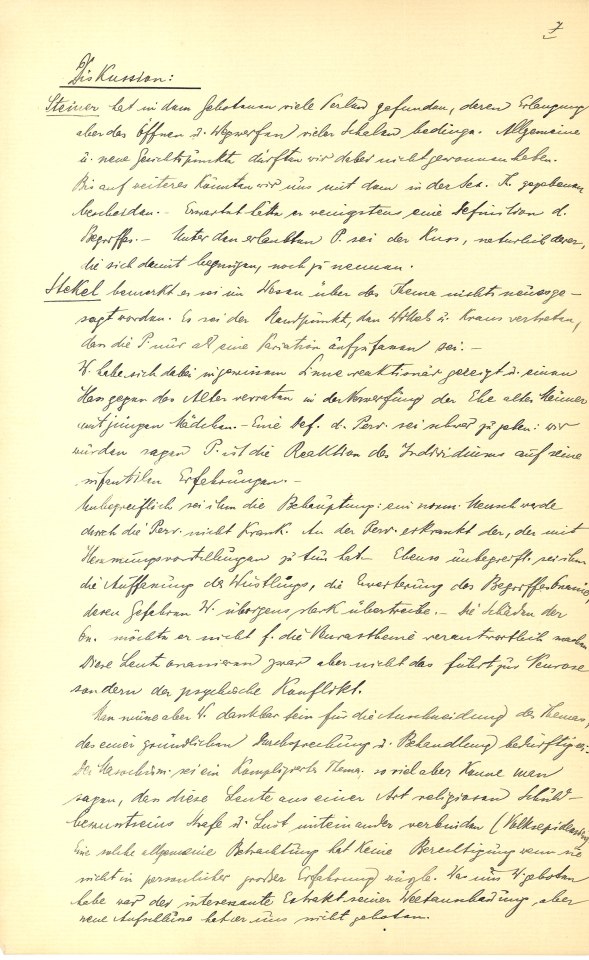 7
Diskussion:
Steiner hat in dem Gebotenen viele Perlen gefunden, deren Erlangung
aber das Öffnen u. Wegwerfen vieler Schalen bedinge. Allgemeine
u. neue Gesichtspunkte dürften wir dabei nicht gewonnen haben.
Bis auf weiteres könnten wir uns mit dem in der Sex. Th. gegebenen
bescheiden. – Erwartet hätte er wenigstens eine Definition d.
Begriffes. – Unter den erlaubten P. sei der Kuss, natürlich derer,
die sich damit begnügen, noch zu nennen.
Stekel bemerkt es sei im Wesen über das Thema nichts neues ge-
sagt worden. Es sei der Standpunkt, den Wittels u. Kraus vertreten,
dass die P. nur als eine Variation aufzufassen sei. –
W. habe sich dabei in gewissem Sinne reaktionär gezeigt u. einen
Hass gegen das Alter verraten in der Verwerfung der Ehe alter Männer
mit jungen Mädchen. – Eine Def. d. Perv. sei schwer zu geben: wir
würden sagen P. ist die Reaktion des Individiums auf seine
infantilen Erfahrungen. –
Unbegreiflich sei ihm die Behauptung: ein norm. Mensch werde
durch die Perv. nicht krank. An der Perv. erkrankt der, der mit
Hemmungsvorstellungen zu tun hat. Ebenso unbegreifl. sei ihm
die Auffassung des Wüstlings, die Erweiterung des Begriffes Onanie,
deren Gefahren W. übrigens stark übertreibe. – Die Schäden der
On. möchte er nicht f. die Neurasthenie verantwortlich machen
Diese Leute onanieren zwar aber nicht das führt zur Neurose
sondern der psychische Konflikt.
Man müsse aber W. dankbar sein für die Anschneidung des Themas,
das einer gründlichen Durchsprechung u. Behandlung bedürftig sei.
Der Masochism. sei ein kompliziertes Thema. so viel aber könne man
sagen, dass diese Leute aus einer Art religiösen Schuld-
bewusstseins Strafe u. Lust miteinander verbinden (Volksepidemien)
Eine solche allgemeine Betrachtung hat keine Berechtigung wenn sie
nicht in persönlicher großer Erfahrung
Was uns W. geboten
habe war der interessante Extrakt seiner Weltanschauung, aber
neue Aufschlüsse hat er uns nicht geboten.